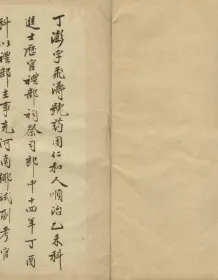 丁澎字飛濤號药園仁和人順治乙未科
進士歷官禮部祠祭司郎中十四年丁酉
科以禮部主事充河南鄉試副考官